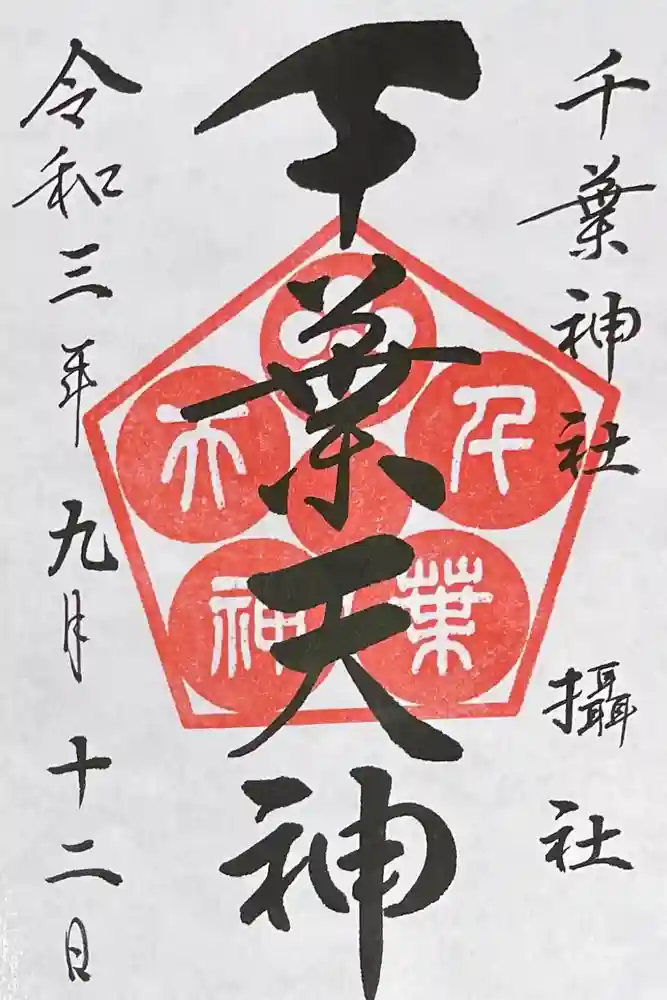 千葉神社 攝社
千葉天神
令和三年 九月 十二日
千葉
天神